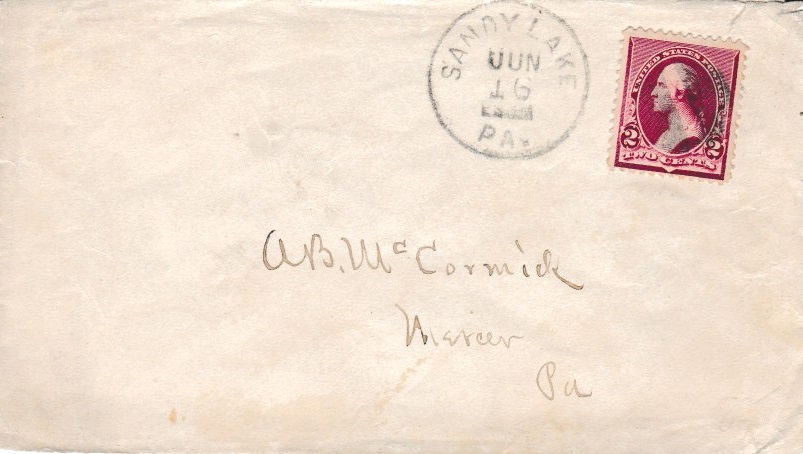 SANDY LAKE
JUN
16
PA.
UNITED STATES POSTAGE
2 2
TWO CENTS
A.B. McCormick
Mercer
Pa